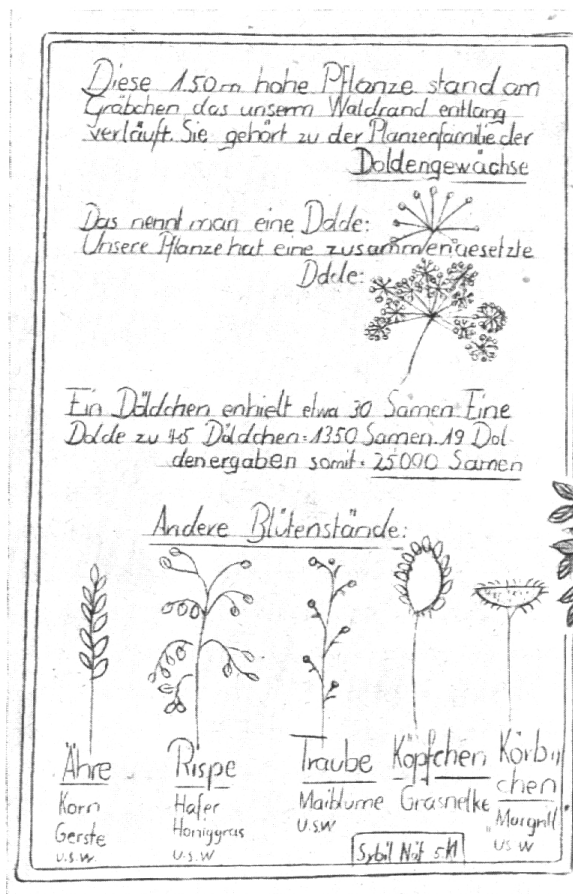 Diese 1.50m hohe Pflanze stand am
Gräbchen das unserm Waldrand entlang
verläuft. Sie gehört zu der Planzenfamilie der
Doldengewächse
Das nennt man eine Dolde:
Unsere Pflanze hat eine zusammengesetzte
Dolde:
Ein Döldchen enhielt etwa 30 Samen Eine
Dolde zu 45 Döldchen = 1350 Samen. 19 Dol-
den ergaben somit = 25000 Samen
Andere Blütenstände:
Ähre
Korn
Gerste
u.s.w
Rispe
Hafer
Honiggras
u.s.w
Traube
Maiblume
u.s.w
Köpfchen
Grasnelke
Körbli
chen
us w
Sybil